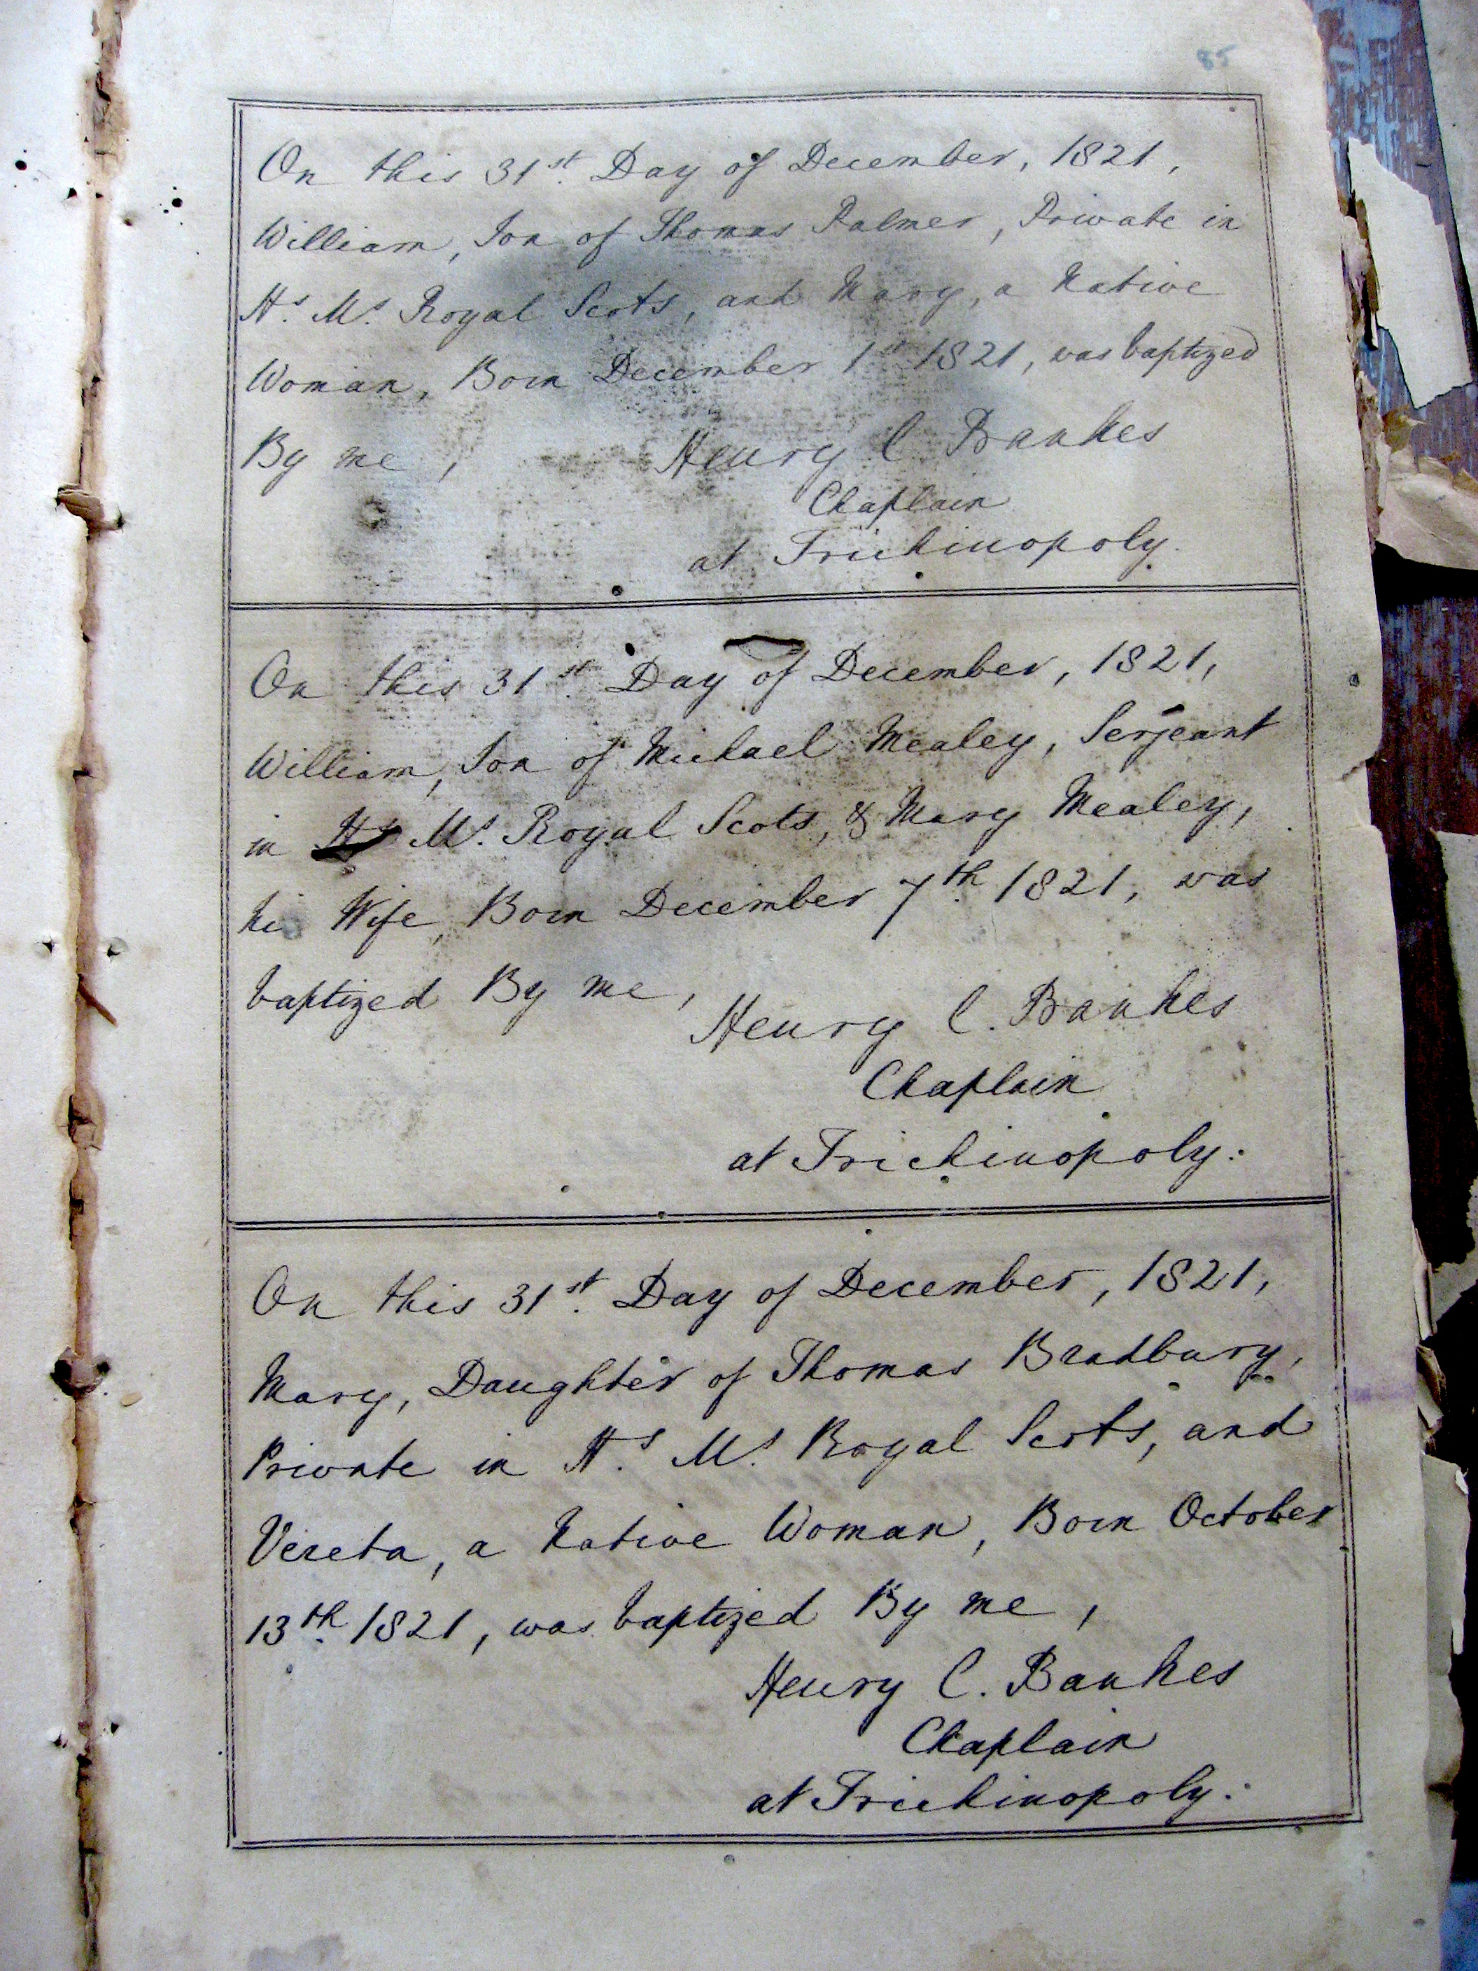 85
On this 31st. Day of December, 1821,
William, Son of Thomas Palmer, Private in
Hs. Ms. Royal Scots, and Mary, a Native
Woman, Born December 1st 1821, was baptized
By me,
Henry C. Bankes
Chaplain
at Trichinopoly.
On this 31st. Day of December, 1821,
William, Son of Michael Mealey, Serjeant
in Hs Ms. Royal Scots, & Mary Mealey,
his Wife, Born December 7th. 1821, was
baptized By me,
Henry C. Bankes
Chaplain
at Trichinopoly.
On this 31st. Day of December, 1821,
Mary, Daughter of Thomas Bradbury,
Private in Hs. Ms. Royal Scots, and
Vereta, a Native Woman, Born October
13th. 1821, was baptized By me,
Henry C. Bankes
Chaplain
at Trichinopoly.